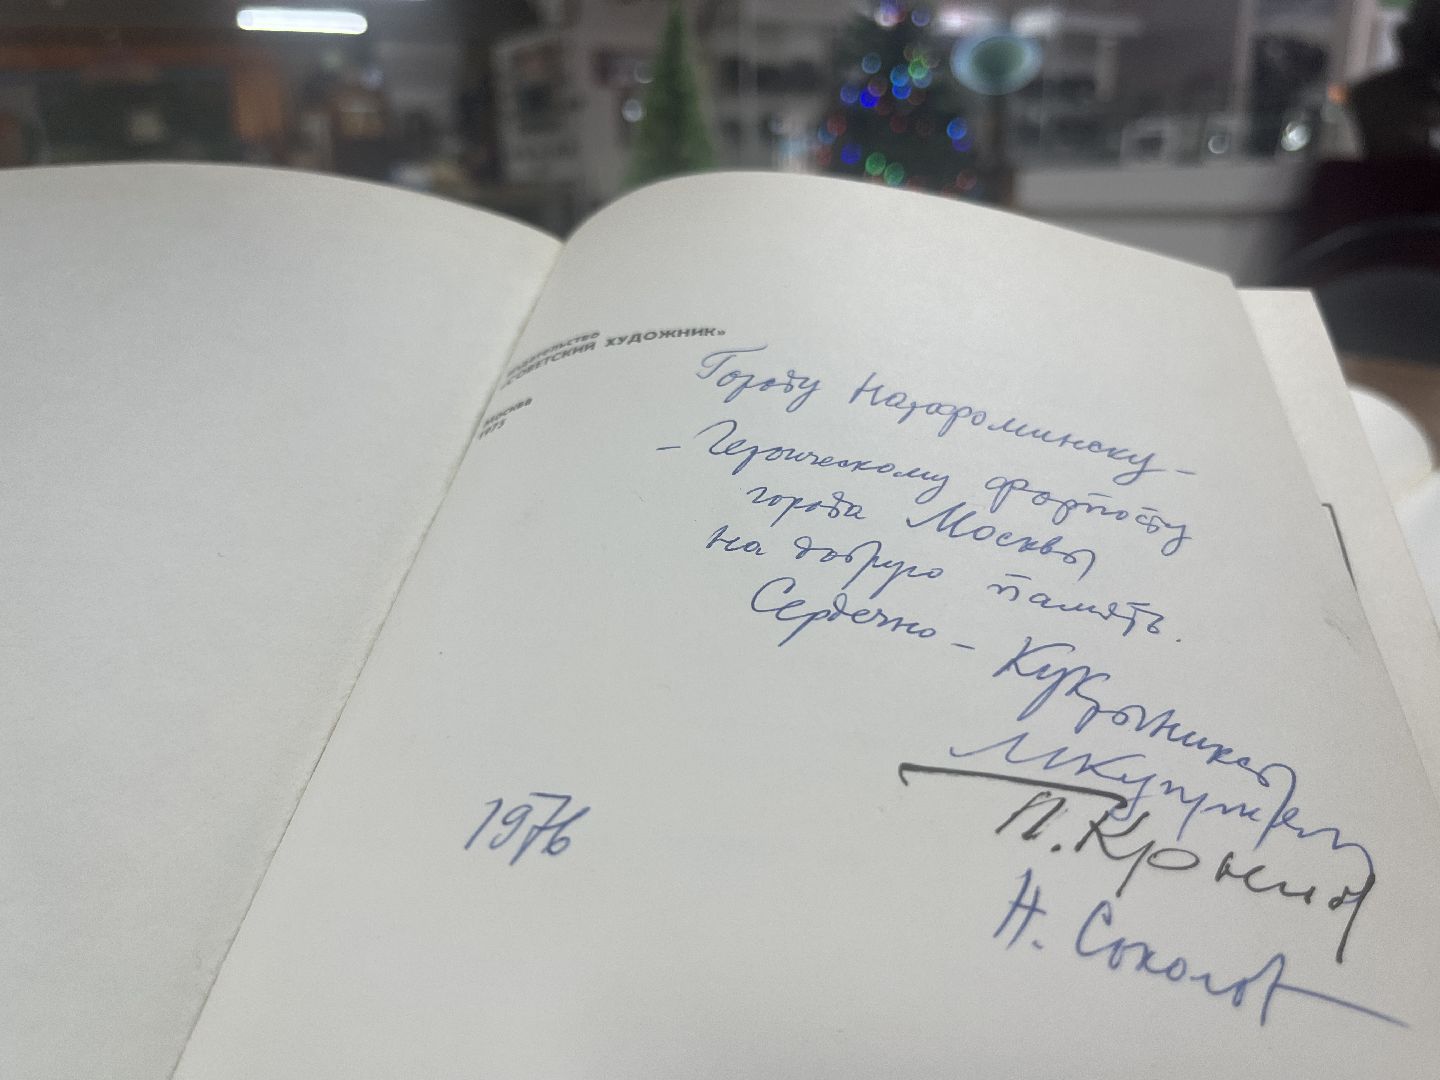 издательство
«СОВЕТСКИЙ ХУДОЖНИК»
Москва
1975
Городу Нарафоминску –
– Героическому форпосту
города Москвы
на добрую память.
Сердечно – Кукрыниксы
МКуприянов
П. Крылов
Н. Соколов
1976